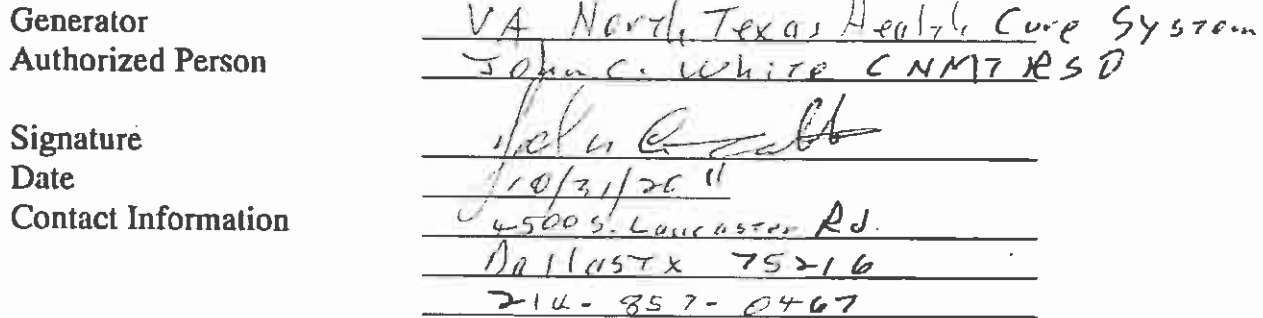 Generator VA North Texas Health Care System
Authorized Person John C. White CNMT RSO
Signature
Date 10/31/2011
Contact Information 4500 S. Lancaster Rd.
Dallas TX 75216
214-857-0467